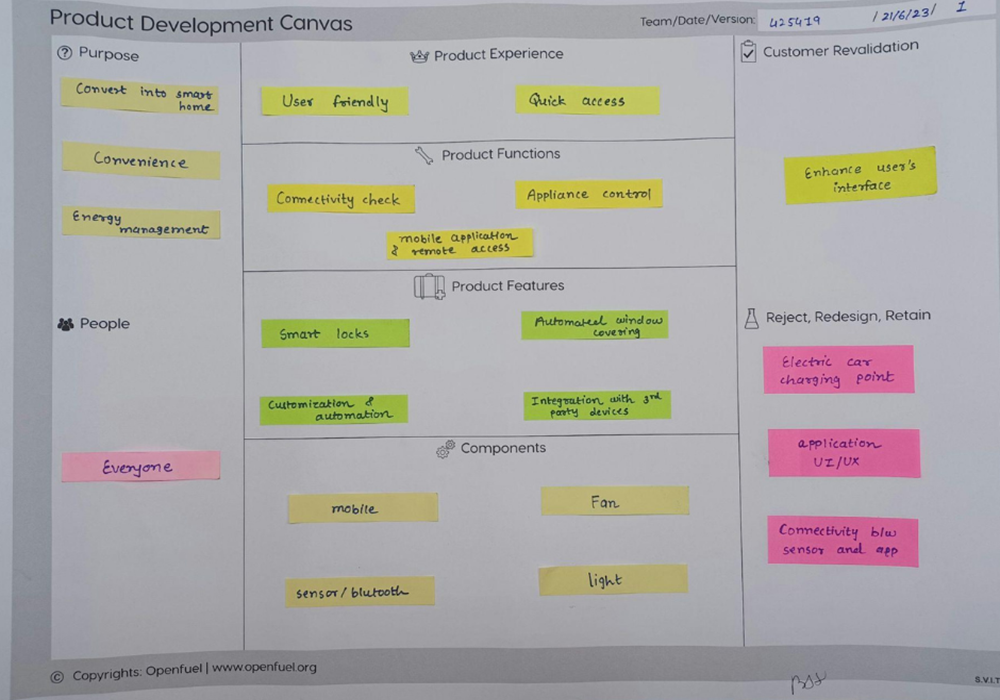 Product Development Canvas
Team/Date/Version: 425419 / 21/6/23/ 1
Purpose
Convert into smart
home
Convenience
Energy
management
People
Everyone
Product Experience
User friendly
Quick access
Product Functions
Connectivity check
Appliance control
mobile application
& remote access
Product Features
Smart locks
Automated window
covering
Customization &
automation
Integration with 3rd
party devices
Components
mobile
Fan
sensor/blutooth
light
Customer Revalidation
Enhance user's
interface
Reject, Redesign, Retain
Electric car
charging point
application
UI/UX
Connectivity b/w
sensor and app
© Copyrights: Openfuel | www.openfuel.org
S.V.I.T